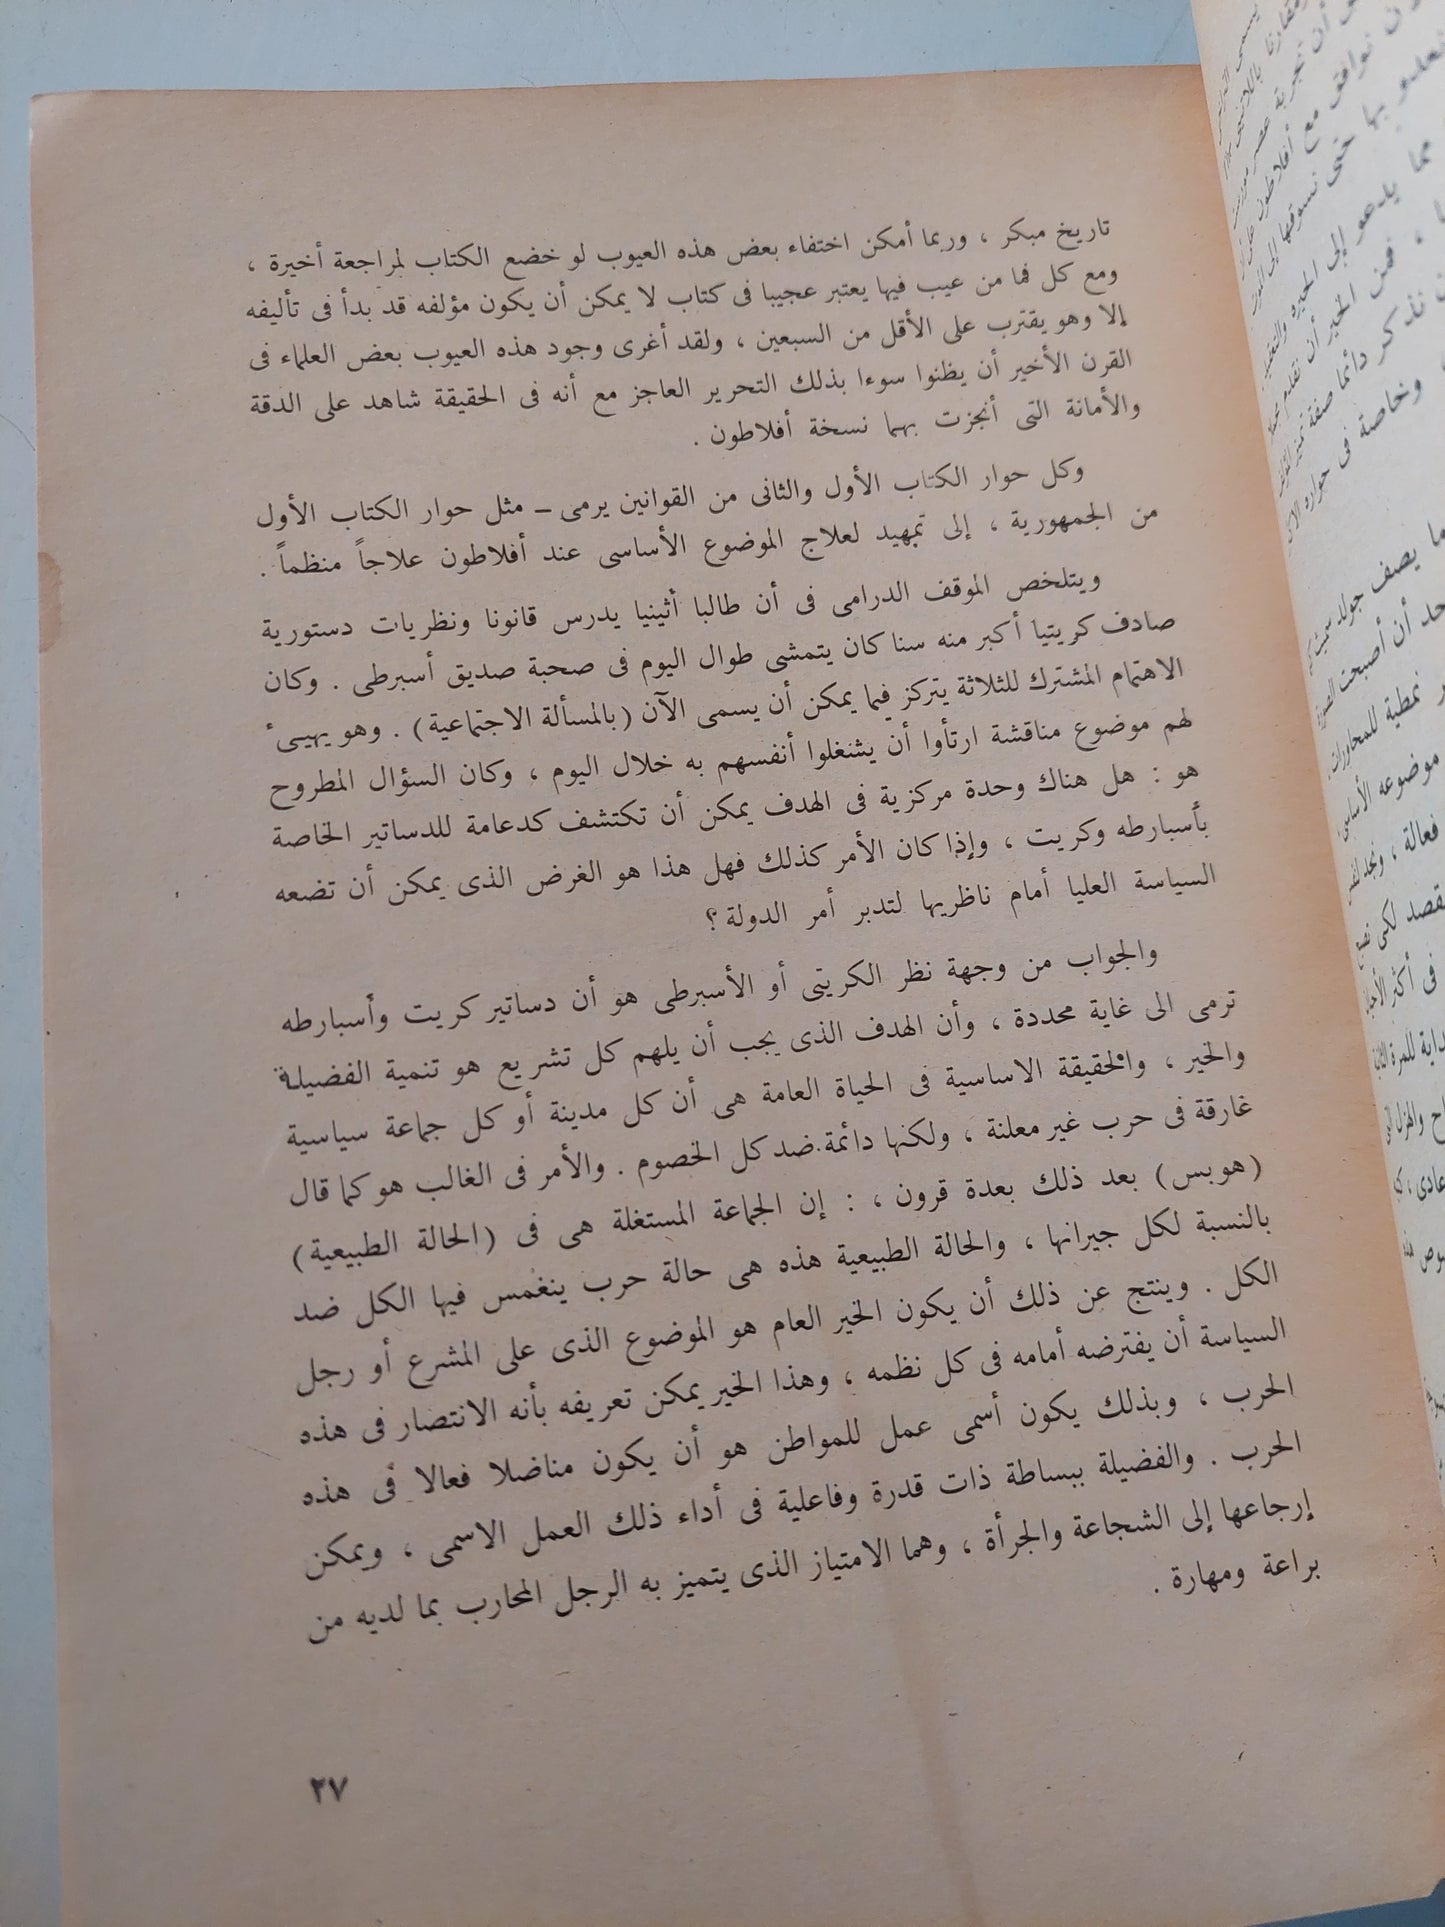 تاريخ مبكر ، وربما أمكن اختفاء بعض هذه العيوب لو خضع الكتاب لمراجعة أخيرة ،
ومع كل فما من عيب فيها يعتبر عجيبا فى كتاب لا يمكن أن يكون مؤلفه قد بدأ فى تأليفه
إلا وهو يقترب على الأقل من السبعين ، ولقد أغرى وجود هذه العيوب بعض العلماء فى
القرن الأخير أن يظنوا سوءا بذلك التحرير العاجز مع أنه فى الحقيقة شاهد على الدقة
والأمانة التى أنجزت بهما نسخة أفلاطون .
وكل حوار الكتاب الأول والثانى من القوانين يرمى ــ مثل حوار الكتاب الأول
من الجمهورية ، إلى تمهيد لعلاج الموضوع الأساسى عند أفلاطون علاجاً منظماً .
ويتلخص الموقف الدرامى فى أن طالبا أثينيا يدرس قانونا ونظريات دستورية
صادف كريتيا أكبر منه سنا كان يتمشى طوال اليوم فى صحبة صديق أسبرطى . وكان
الاهتمام المشترك للثلاثة يتركز فيما يمكن أن يسمى الآن (بالمسألة الاجتماعية) . وهو يهيىء
لهم موضوع مناقشة ارتأوا أن يشنغلوا أنفسهم به خلال اليوم ، وكان السؤال المطروح
هو : هل هناك وحدة مركزية فى الهدف يمكن أن تكتشف كدعامة للدساتير الخاصة
بأسبارطه وكريت ، وإذا كان الأمر كذلك فهل هذا هو الغرض الذى يمكن أن تضعه
السياسة العليا أمام ناظريها لتدبر أمر الدولة ؟
والجواب من وجهة نظر الكريتى أو الأسبرطى هو أن دساتير كريت وأسبارطه
ترمى الى غاية محددة ، وأن الهدف الذى يجب أن يلهم كل تشريع هو تنمية الفضيلة
والخير ، والحقيقة الاساسية فى الحياة العامة هى أن كل مدينة أو كل جماعة سياسية
غارقة فى حرب غير معلنة ، ولكنها دائمة ضد كل الخصوم . والأمر فى الغالب هو كما قال
(هوبس) بعد ذلك بعدة قرون ، : إن الجماعة المستغلة هى فى (الحالة الطبيعية)
بالنسبة لكل جيرانها ، والحالة الطبيعية هذه هى حالة حرب ينغمس فيها الكل ضد
الكل . وينتج عن ذلك أن يكون الخير العام هو الموضوع الذى على المشرع أو رجل
السياسة أن يفترضه أمامه فى كل نظمه ، وهذا الخير يمكن تعريفه بأنه الانتصار فى هذه
الحرب ، وبذلك يكون أسمى عمل للمواطن هو أن يكون مناضلا فعالا فى هذه
الحرب . والفضيلة ببساطة ذات قدرة وفاعلية فى أداء ذلك العمل الاسمى ، ويمكن
إرجاعها إلى الشجاعة والجرأة ، وهما الامتياز الذى يتميز به الرجل المحارب بما لديه من
براعة ومهارة .
٢٧